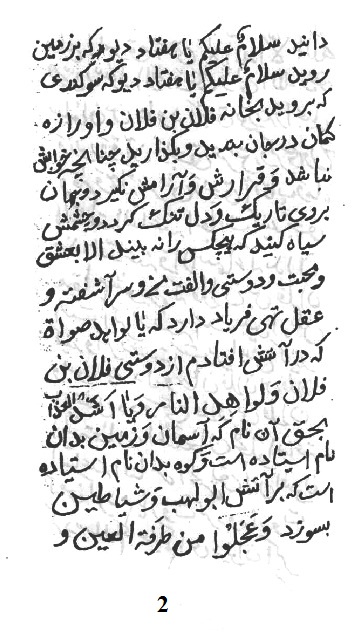 دانید سلامٌ علیکم یا هفتاد دیو که بر زمین
روید سلامٌ علیکم یا هفتاد دیو که سوکندی
که بروید بخانه فلان بن فلان و او را زه
کمان در دهان بندید و بگذارید چنانچه خویش
نباشد و قرارش و آرامش نگیرد و جهان
بروی تاریک و دل تنک کردد و چشمش
سیاه کنید که هیچکس را نه بیند الا بعشق
و محبت و دوستی و الفت من و سر آشفته و
عقل تهی فریاد دارد که یا لواهد صواة
که در آتش افتادم از دوستی فلان بن
فلان و لواهل الناس و یا اشد العذاب
بحق آن نام که آسمان و زمین بدان
نام ایستاده است و کوه بدان نام استیاده
است که بر آتش ابولهب و شیاطین
بسوزد و عجلوا من طرفة العین و
2